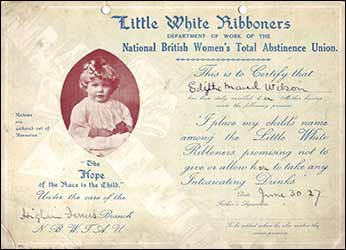 Little White Ribboners
DEPARTMENT OF WORK OF THE
National British Women's Total Abstinence Union.
This is to Certify that
Edith Maud Wilson
has been duly enrolled a Mother having
made the following promise
"I place my child's name
among the Little White
Ribboners promising not to
give or allow her to take any
Intoxicating Drinks"
Date June 30. 27
"The
Hope
of the Race is the Child."
Under the care of the
Branch
N B W T A U